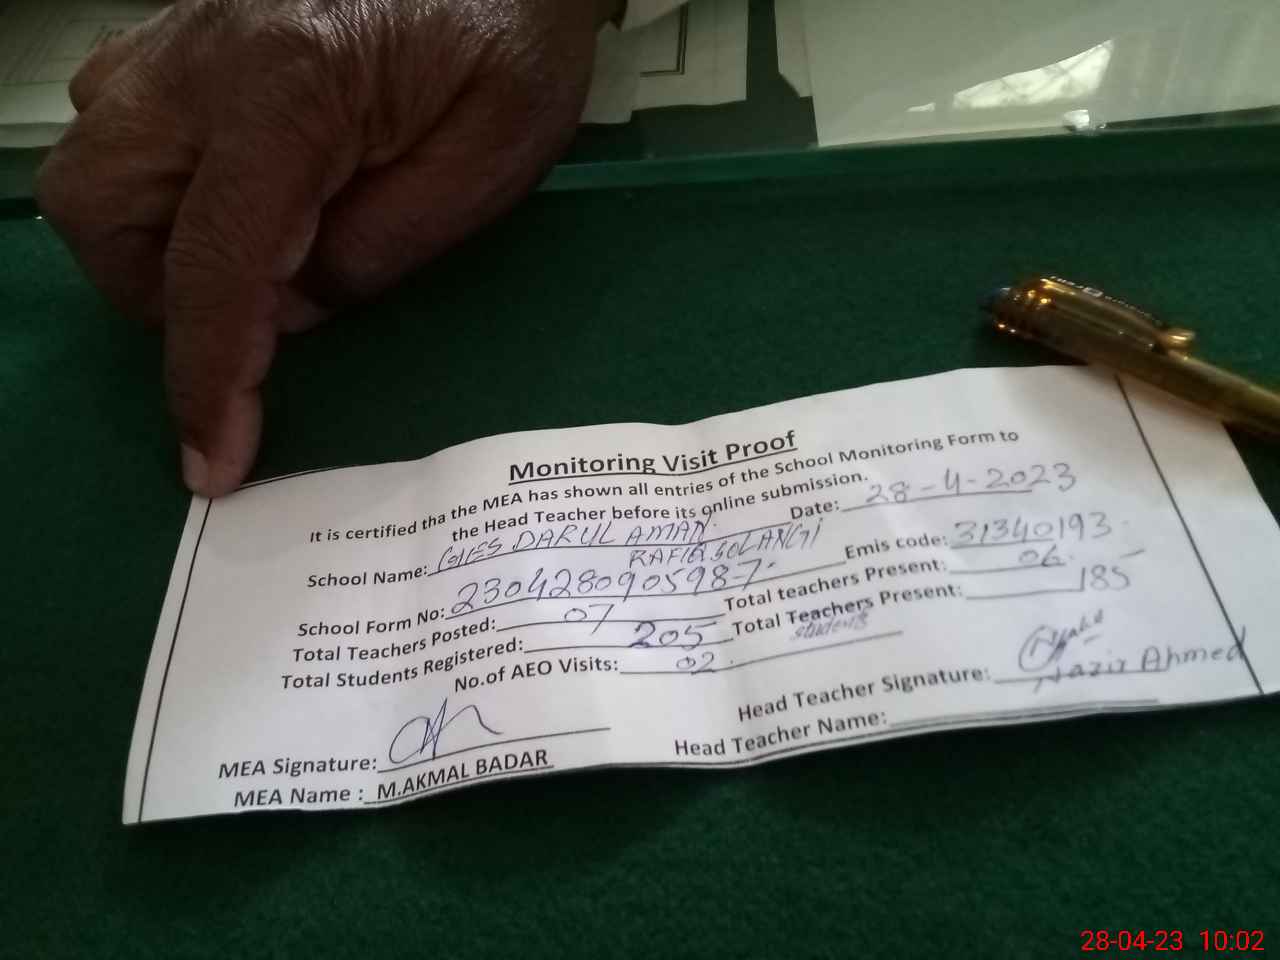 Monitoring Visit Proof
It is certified tha the MEA has shown all entries of the School Monitoring Form to
the Head Teacher before its online submission.
School Name: GHES DARUL AMAN Date: 28-4-2023
RAFIQ SOLANGI
School Form No: 2304280905987 Emis code: 31340193
Total Teachers Posted: 07 Total teachers Present: 06
Total Students Registered: 205 Total Teachers Present: 185
students
No.of AEO Visits: 02
MEA Signature: Head Teacher Signature: Nazir Ahmed
MEA Name : M.AKMAL BADAR Head Teacher Name:
28-04-23 10:02